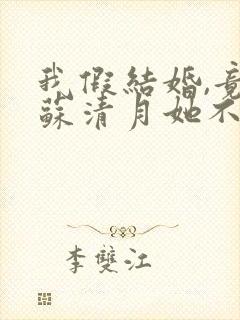 我假結婚,竟
蘇清月她不
李雙江